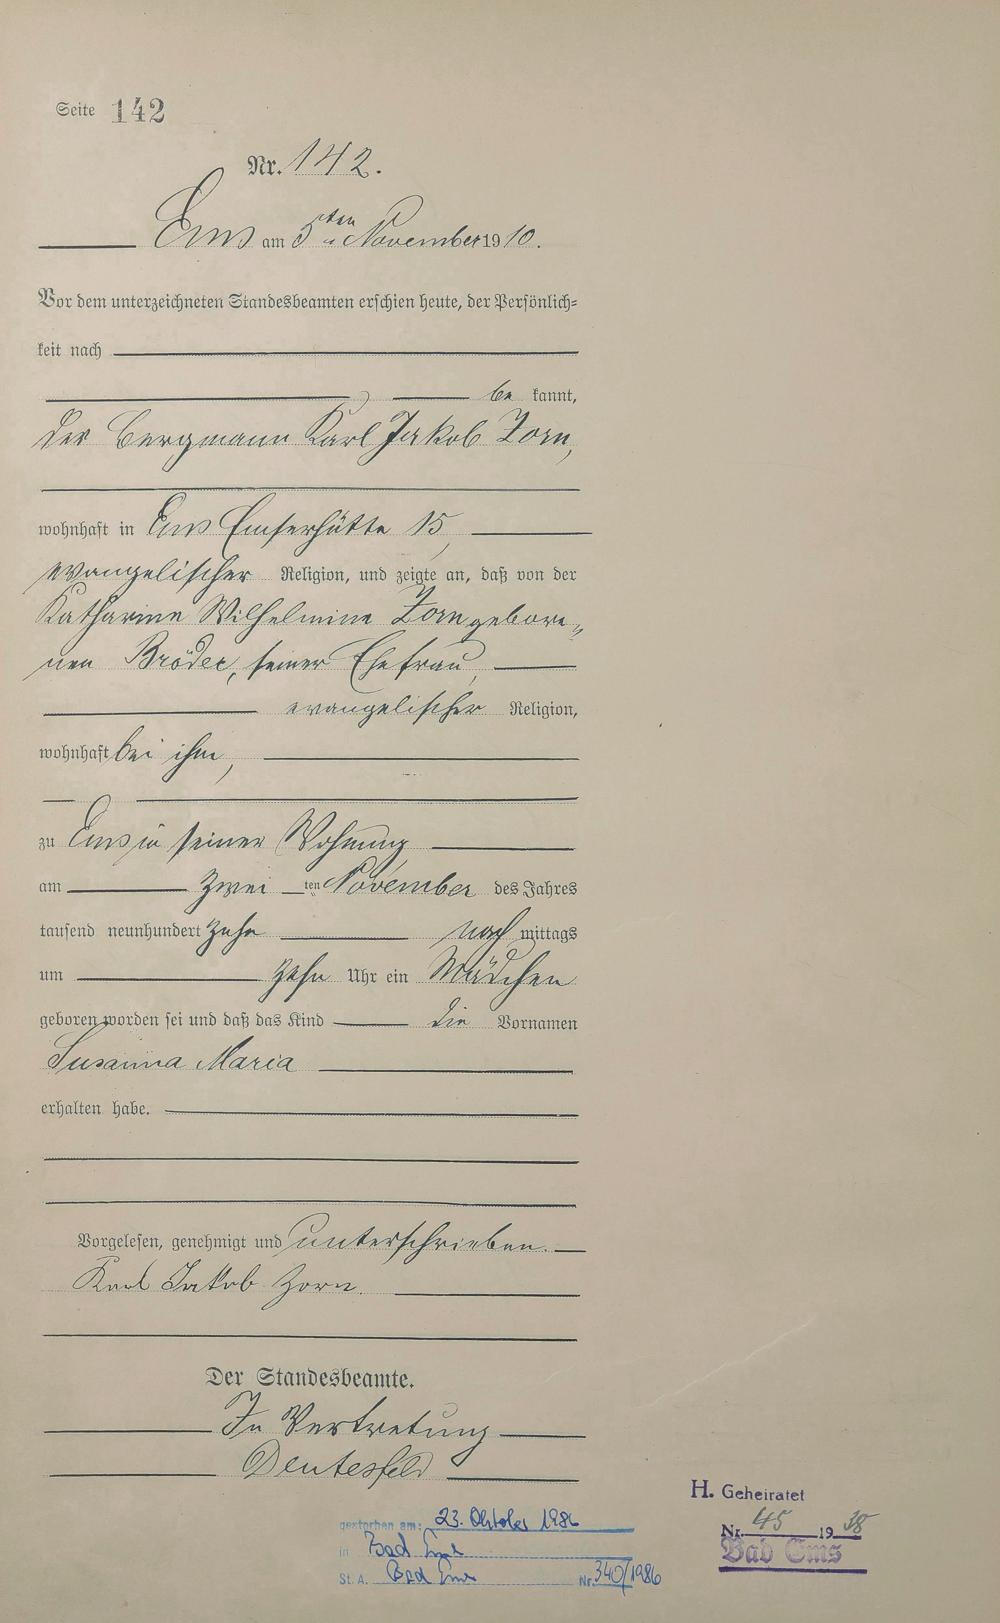 Seite 142
Nr. 142.
Ems am 5ten November 1910.
Vor dem unterzeichneten Standesbeamten erschien heute, der Persönlich=
keit nach
be kannt,
der Bergmann Karl Jakob Zorn,
wohnhaft in Ems Emserhütte 15,
evangelischer Religion, und zeigte an, daß von der
Katharine Wilhelmine Zorn gebore=
nen Bröder, seiner Ehefrau,
evangelischer Religion,
wohnhaft bei ihm,
zu Ems in seiner Wohnung
am zwei ten November des Jahres
tausend neunhundert zehn nach mittags
um zehn Uhr ein Mädchen
geboren worden sei und daß das Kind die Vornamen
Susanna Maria
erhalten habe.
Vorgelesen, genehmigt und unterschrieben.
Karl Jakob Zorn.
Der Standesbeamte.
In Vertretung
gestorben am: 23. Oktober 1986
in Bad Ems
St. A. Bad Ems Nr. 340/1986
H. Geheiratet
Nr. 45 1938
Bad Ems